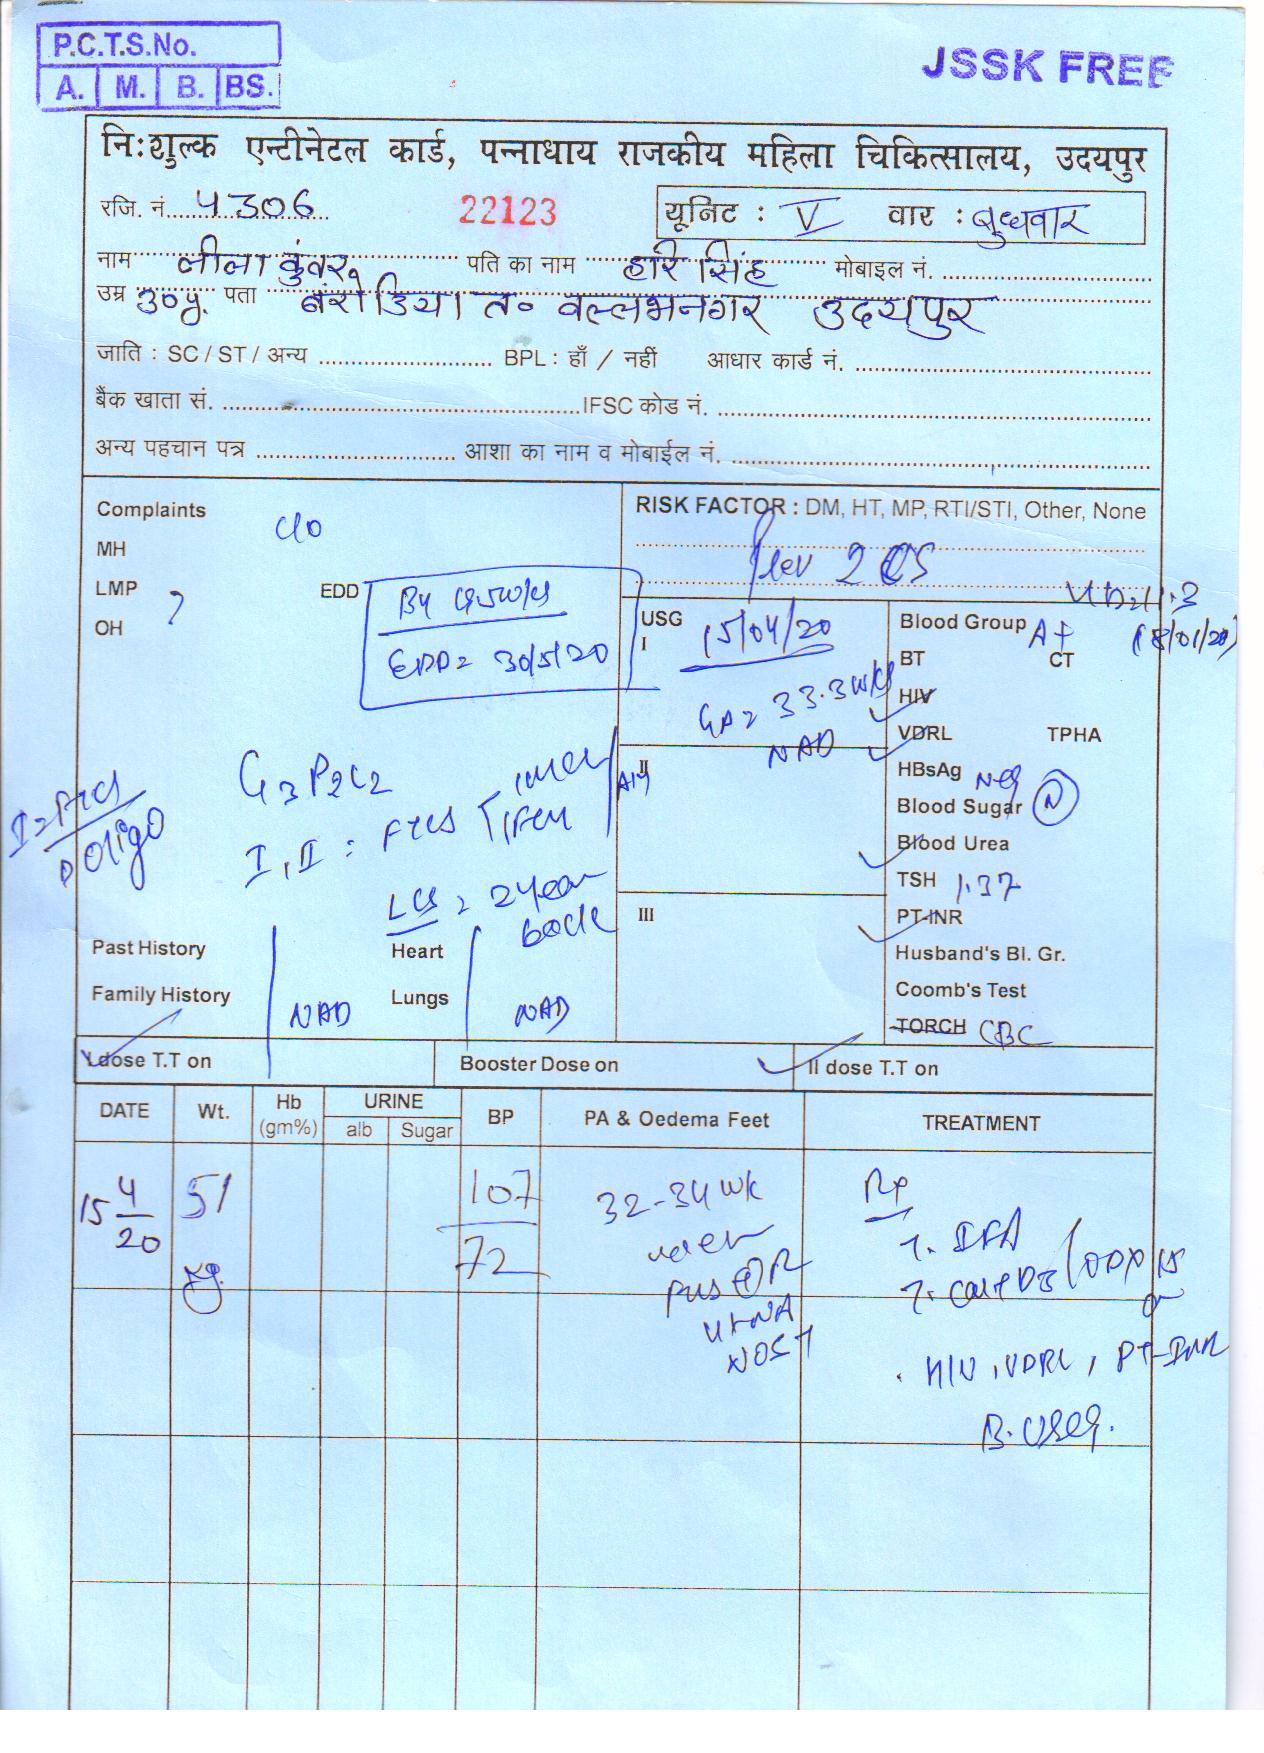 P.C.T.S.No.
A. M. B. BS.
JSSK FREE
नि:शुल्क एन्टीनेटल कार्ड, पन्नाधाय राजकीय महिला चिकित्सालय, उदयपुर
रजि. नं. 4306 22123 यूनिट : V वार : बुधवार
नाम लीला कुंवर पति का नाम हरि सिंह मोबाइल नं.
उम्र 30y. पता त० वल्लभनगर उदयपुर
जाति : SC / ST / अन्य BPL : हाँ / नहीं आधार कार्ड नं.
बैंक खाता सं. IFSC कोड नं.
अन्य पहचान पत्र आशा का नाम व मोबाईल नं.
Complaints C/o
MH
LMP ?
OH
EDD By
EDD = 30/5/20
RISK FACTOR : DM, HT, MP, RTI/STI, Other, None
Prev 2 CS
USG
I 15/04/20
GA = 33.3 wks
NAD
II
III
11.3
(18/01/20)
Blood Group A+
BT CT
HIV
VDRL TPHA
HBsAg Neg
Blood Sugar N
Blood Urea
TSH 1.37
PT-INR
Husband's Bl. Gr.
Coomb's Test
TORCH CBC
G3P2L2
I, II = FTCS
LCS = 2 year back
Oligo
Past History Heart
Family History NAD Lungs NAD
I dose T.T on Booster Dose on II dose T.T on
DATE Wt. Hb (gm%) URINE alb Sugar BP PA & Oedema Feet TREATMENT
15/4/20 51 kg. 107/72 32-34 wk
Rx
IFA
HIV, VDRL, PT-INR